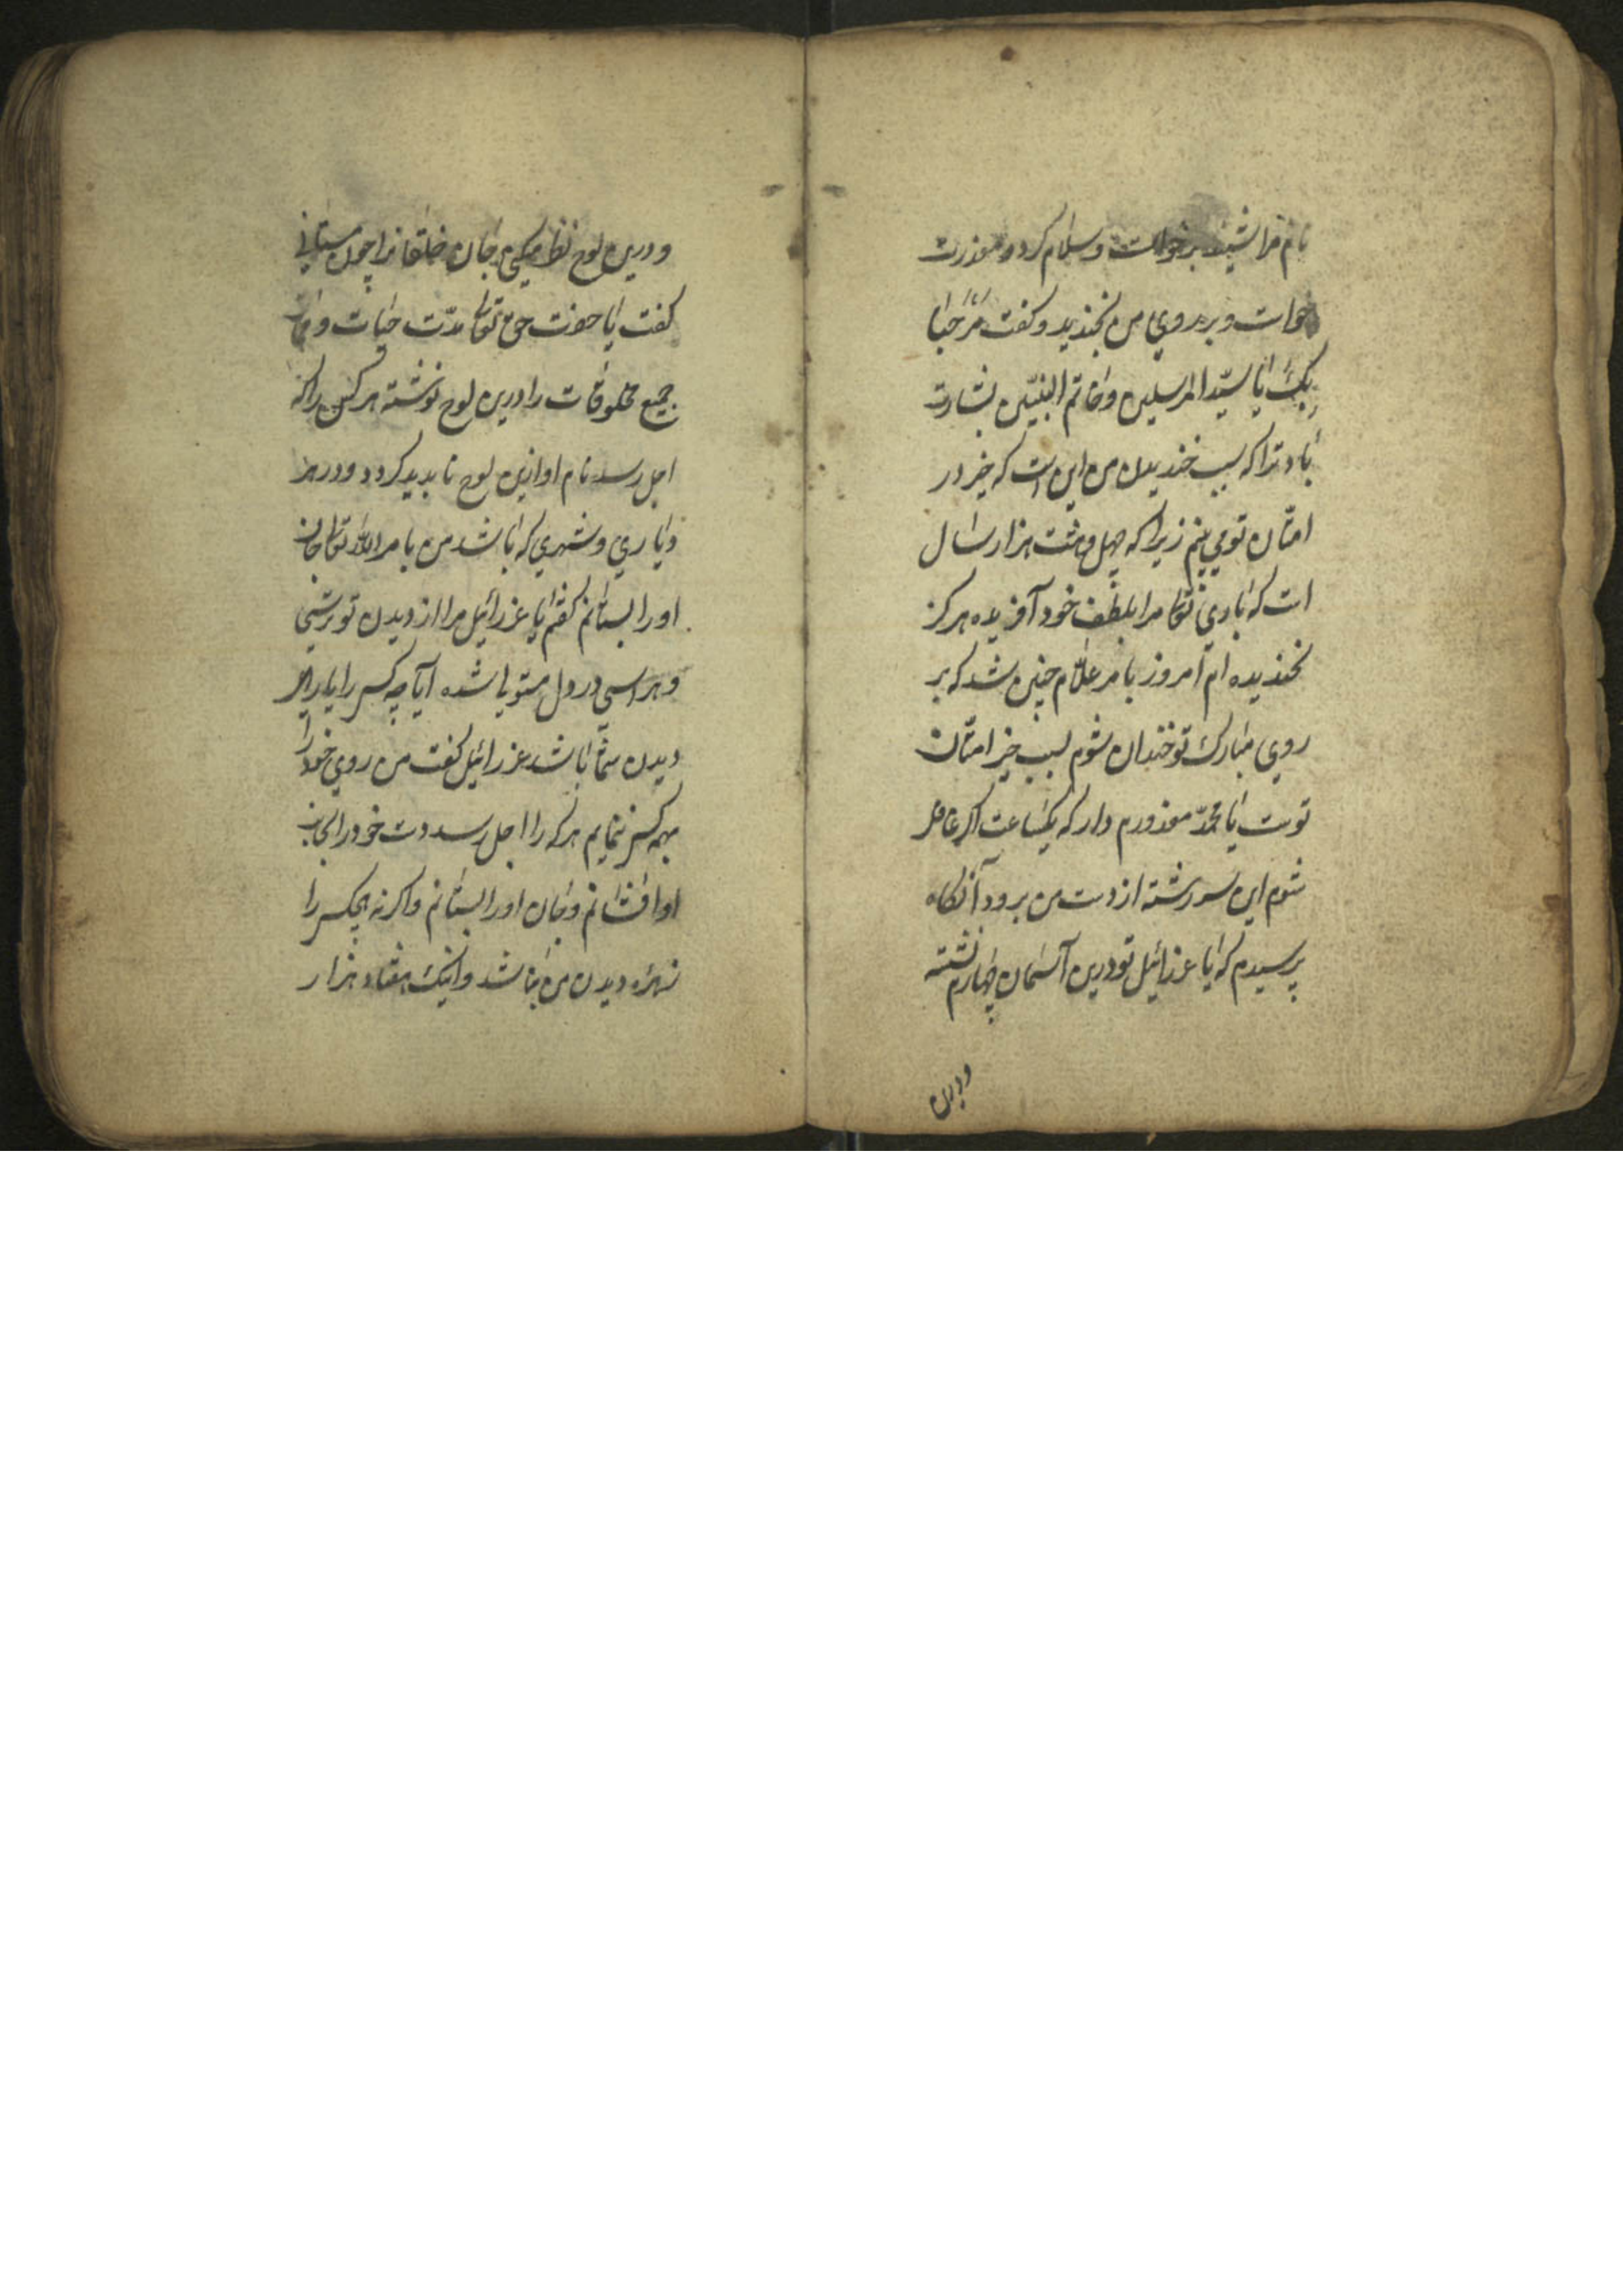 نام مرا شنید برخواست و سلام کرد و معذرت
خواست و بر روی من بخندید و گفت مرحبا
بک یا سید المرسلین و خاتم النبیین بشارت
باد ترا که سبب خندیدن من این است که خیر در
امتان تو می بینم زیرا که چهل و هشت هزار سال
است که باری تعالی مرا بلطف خود آفریده هرگز
نخندیده ام امروز بامر علام چنین شد که بر
روی مبارک تو خندان شوم بسبب خیر امتان
تست یا محمد معذورم دار که یکساعت اگر غافل
شوم این سررشته از دست من برود آنگاه
پرسیدم که یا عزرائیل تو درین آسمان چهارم نشسته
ودرین
ودرین لوح نظر میکنی جان خلقانرا چون میستانی
گفت یا حضرت حق تعالی مدت حیات و ممات
جمیع مخلوقات را درین لوح نوشته هر کس را که
اجل رسد نام او ازین لوح نابدید کردد و در هر
دیاری و شهری که باشد من بامر الله تعالی جان
او را بستانم گفتم یا عزرائیل مرا از دیدن تو ترسی
و هراسی در دل مستولی شده آیا چه کس را یارای
دیدن شما باشد عزرائیل گفت من روی خود را
بهمه کس ننمایم هر که را اجل رسد دست خود را بجانب
او افشانم و جان او را بستانم و اکرنه هیچکس را
زهره دیدن من نباشد و اینک هفتاد هزار